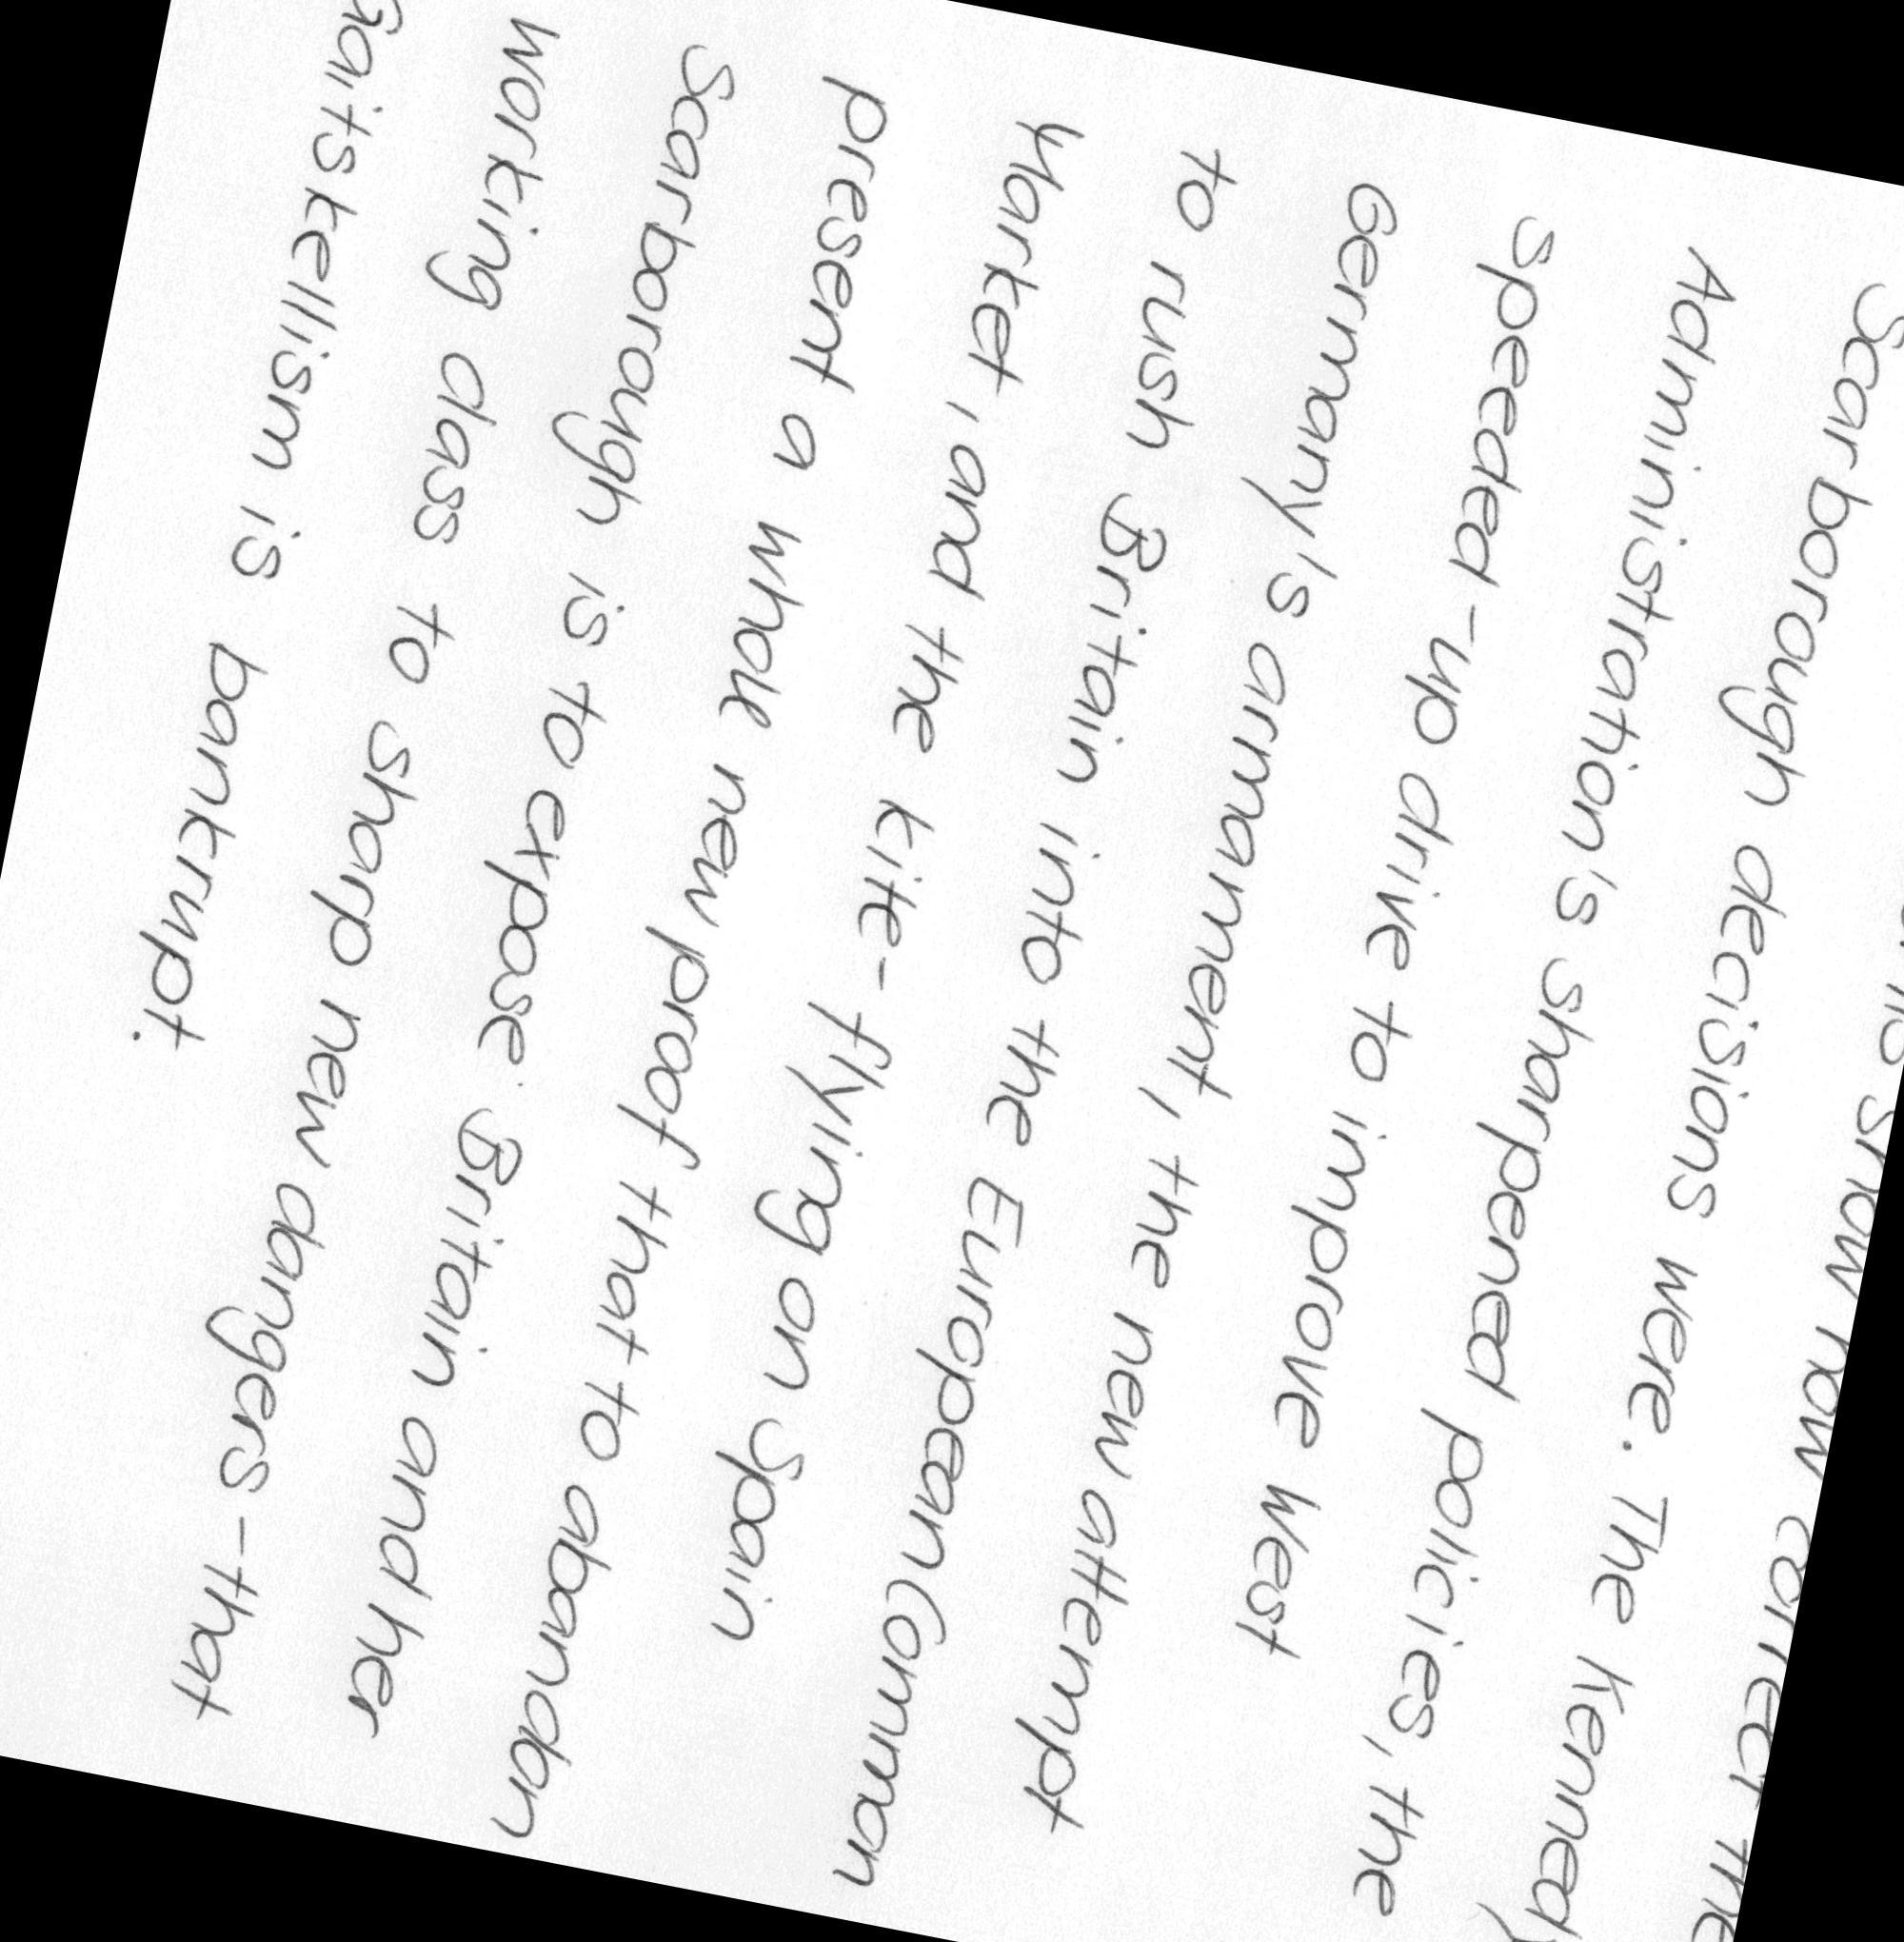 show how correct the
Scarborough decisions were. The Kennedy
Administration's sharpened policies, the
speeded-up drive to improve West
Germany's armament, the new attempt
to rush Britain into the European Common
Market, and the kite-flying on Spain
present a whole new proof that to abandon
Scarborough is to expose Britain and her
working class to sharp new dangers - that
Gaitskellism is bankrupt.